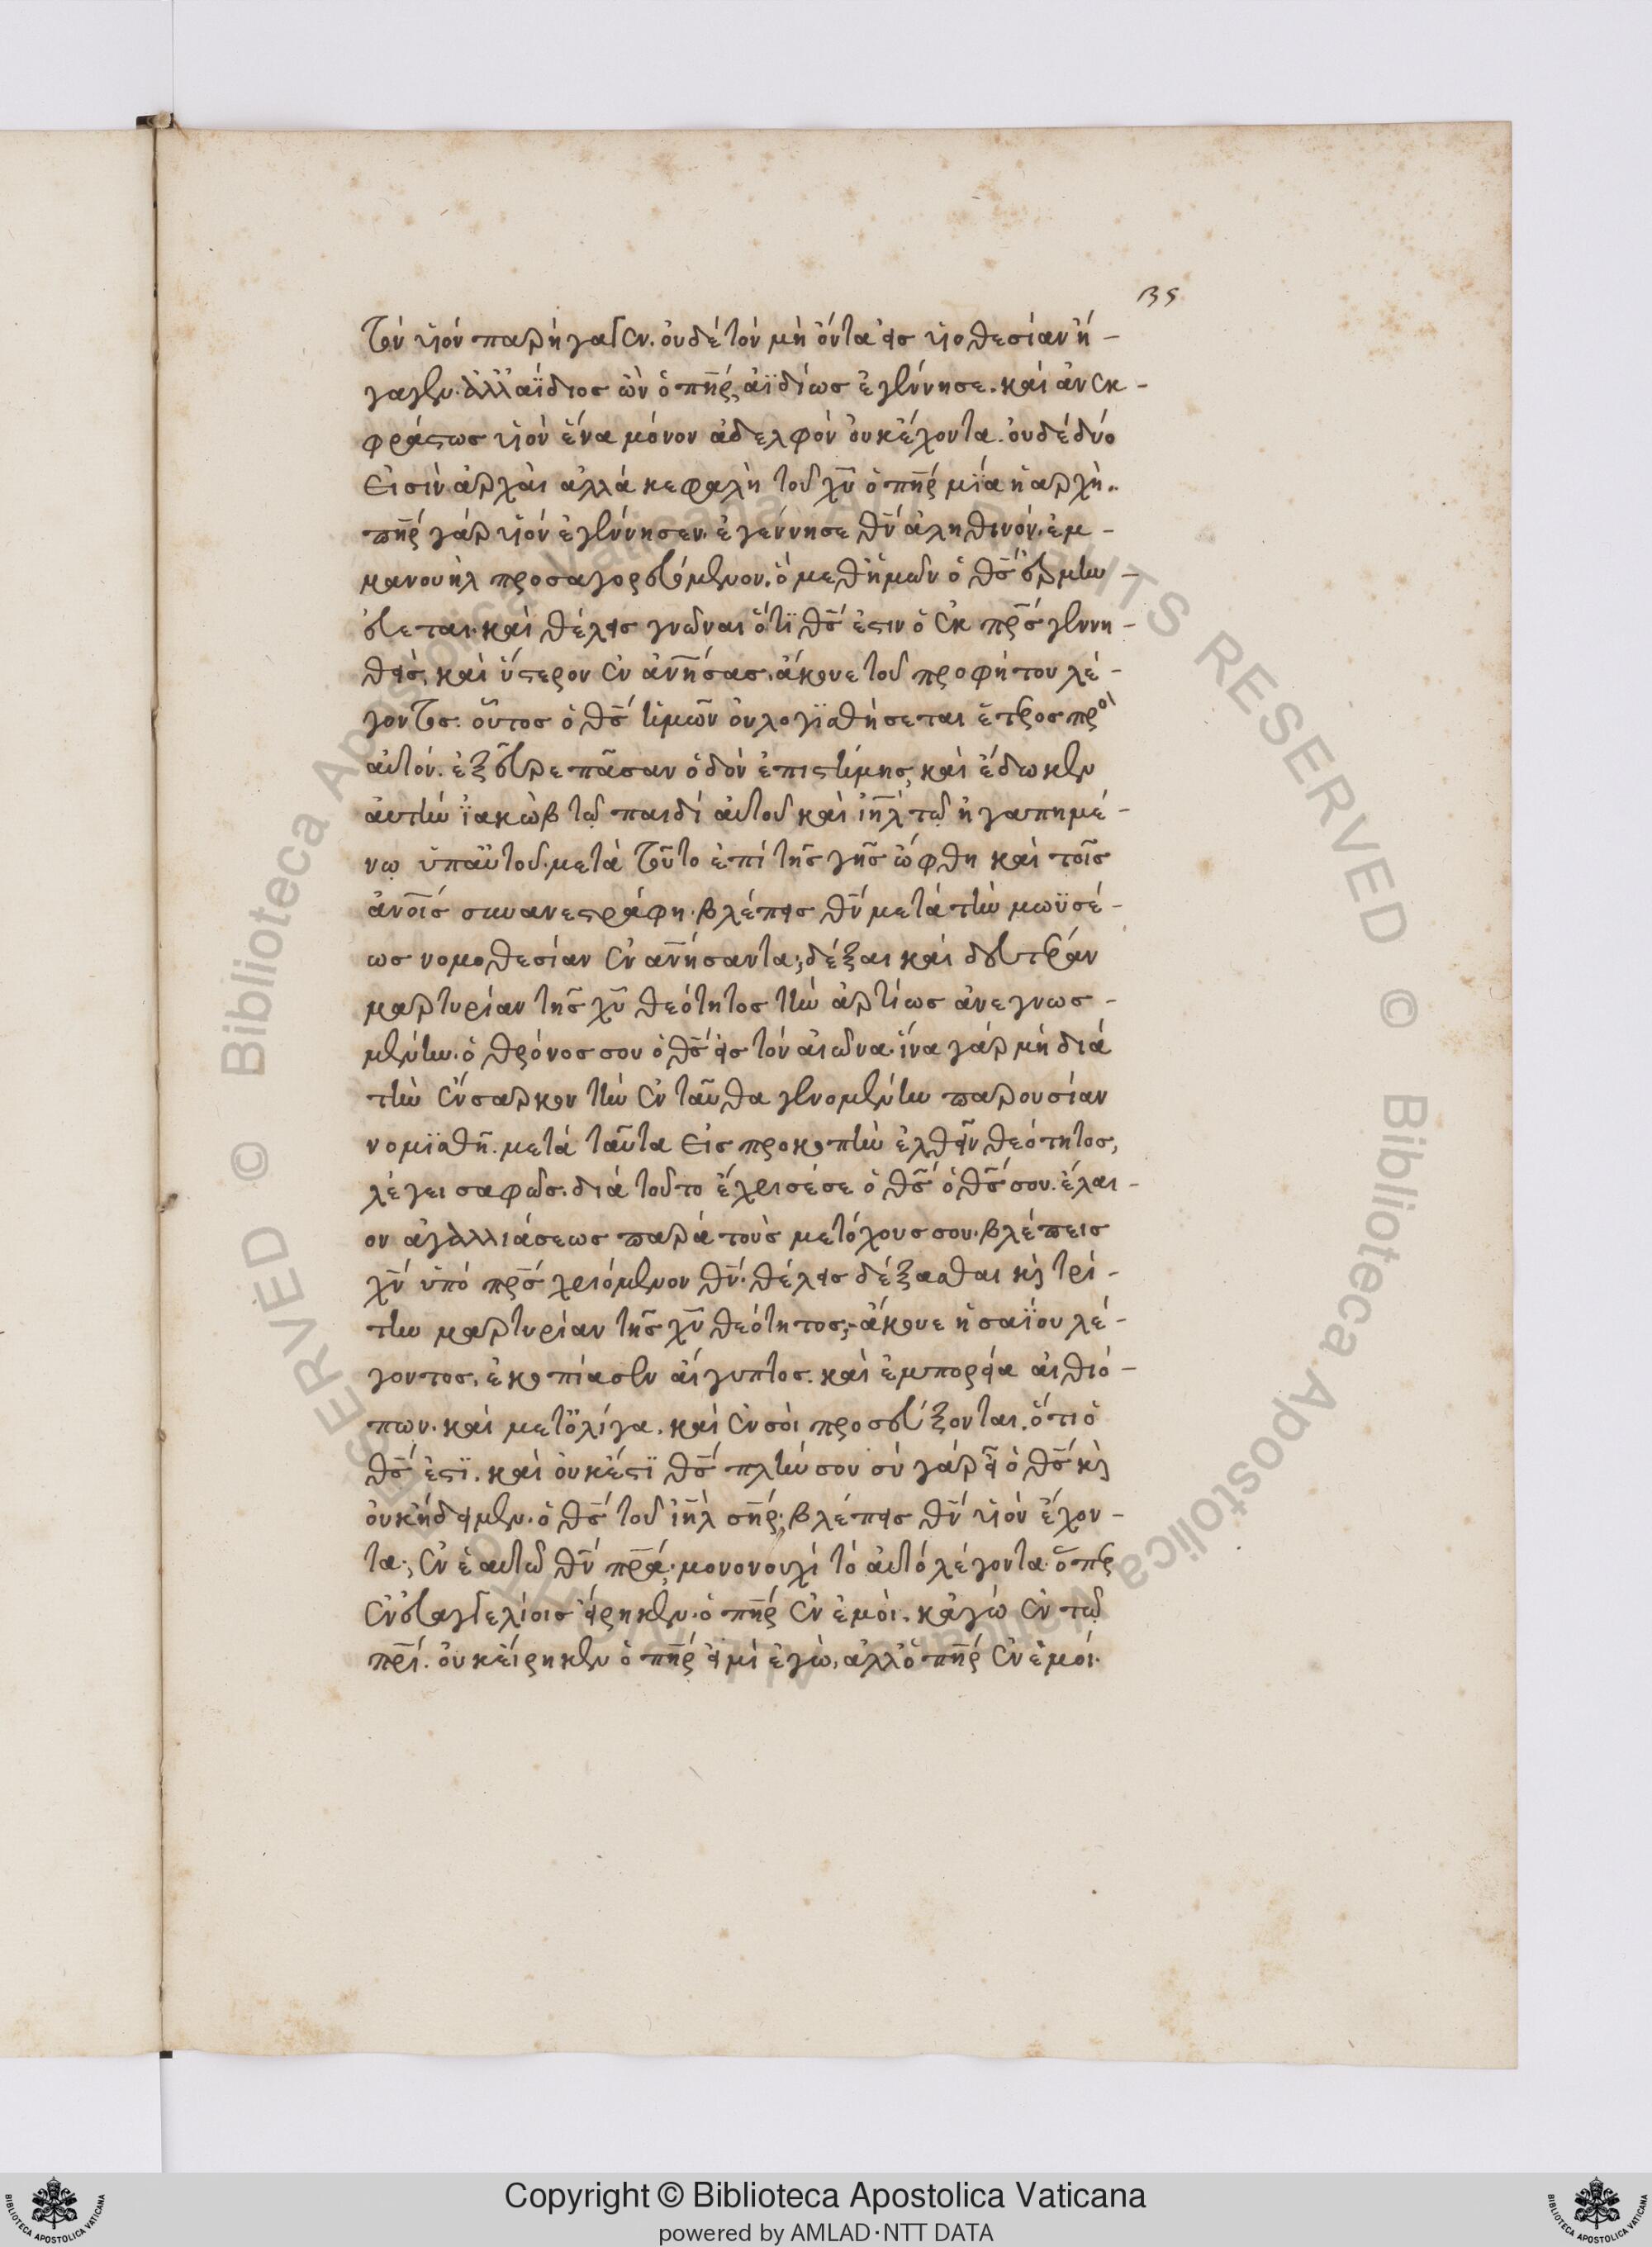 135
τὸν υἱὸν παρήγαγεν. οὐδὲ τὸν μὴ ὄντα εἰς υἱοθεσίαν ἤ-
γαγεν. ἀλλ' ἀΐδιος ὢν ὁ π̅η̅ρ, ἀϊδίως ἐγέννησε. καὶ ἀνεκ-
φράστως υἱὸν ἕνα μόνον ἀδελφὸν οὐκ ἔχοντα. οὐδὲ δύο
εἰσὶν ἀρχαὶ ἀλλὰ κεφαλὴ τοῦ χ̅υ̅ ὁ π̅η̅ρ μία ἡ αρχή.
π̅η̅ρ γὰρ υἱὸν ἐγέννησεν. ἐγέννησε θ̅ν̅ ἀληθινόν. ἐμ-
μανουὴλ προσαγορευόμενον. ὁ μεθ' ἡμῶν ὁ θ̅ς̅ ἑρμην-
εύεται. καὶ θέλεις γνῶναι ὅτι θ̅ς̅ ἐστιν ὁ ἐκ π̅ρ̅ς̅ γεννη-
θεὶς, καὶ ὕστερον ἐν αν̅ήσας. ἄκουε τοῦ προφήτου λέ-
γοντος. οὗτος ὁ θ̅ς̅ ἡμῶν οὐ λογισθήσεται ἕτερος πρὸ
αὐτόν. ἐξεῦρε πᾶσαν ὁδὸν ἐπιστήμης, καὶ ἔδωκεν
αὐτὴν ἰακὼβ τῷ παιδὶ αὐτοῦ καὶ ι̅η̅λ τῷ ἠγαπημέ-
νῳ ὑπ' αὐτοῦ. μετὰ τοῦτο ἐπὶ τῆς γῆς ὤφθη καὶ τοῖς
ἀν̅ο̅ι̅ς συνανεστράφη. βλέπεις θ̅ν̅ μετὰ τὴν μωϋσέ-
ως νομοθεσίαν ἐν αν̅ήσαντα; δέξαι καὶ δευτέραν
μαρτυρίαν τῆς χ̅υ̅ θεότητος τὴν ἀρτίως ἀνεγνωσ-
μένην. ὁ θρόνος σου ὁ θ̅ς̅ εἰς τὸν αἰῶνα. ἵνα γὰρ μὴ διὰ
τὴν ἔνσαρκον τὴν ἐνταῦθα γενομένην παρουσίαν
νομισθῇ. μετὰ ταῦτα εἰς προκοπὴν ἐλθεῖν θεότητος,
λέγει σαφῶς. διὰ τοῦτο ἔχρισέ σε ὁ θ̅ς̅ ὁ θ̅ς̅ σου. ἔλαι-
ον ἀγαλλιάσεως παρὰ τοὺς μετόχους σου. βλέπεις
χ̅ν̅ ὑπὸ π̅ρ̅ς̅ χριόμενον θ̅ν̅. θέλεις δέξασθαι κ̀ τρί-
την μαρτυρίαν τῆς χ̅υ̅ θεότητος; ἄκουε ἡσαΐου λέ-
γοντος. ἐκοπίασεν αἴγυπτος. καὶ ἐμπορεία αἰθιό-
πων. καὶ μετ' ὀλίγα. καὶ ἐν σοὶ προσεύξονται. ὅτι ὁ
θ̅ς̅ ἐστι. καὶ οὐκ ἔστι θ̅ς̅ πλὴν σου σὺ γὰρ εἶ ὁ θ̅ς̅ κ̀
οὐκ ᾔδειμεν. ὁ θ̅ς̅ τοῦ ι̅η̅λ σ̅η̅ρ; βλέπεις θ̅ν̅ υἱὸν ἔχον-
τα; ἐν ἑαυτῷ θ̅ν̅ π̅ρ̅α̅. μονονουχὶ τὸ αὐτὸ λέγοντα. ὅπερ
ἐν εὐαγγελίοις εἴρηκεν. ὁ π̅η̅ρ ἐν ἐμοὶ. κἀγὼ ἐν τῷ
π̅ρ̅ι̅. οὐκ εἴρηκεν ὁ π̅η̅ρ εἰμὶ ἐγὼ, ἀλλ' ὁ π̅η̅ρ ἐν ἐμοί.
© Biblioteca Apostolica Vaticana ALL RIGHTS RESERVED
Copyright © Biblioteca Apostolica Vaticana
powered by AMLAD·NTT DATA